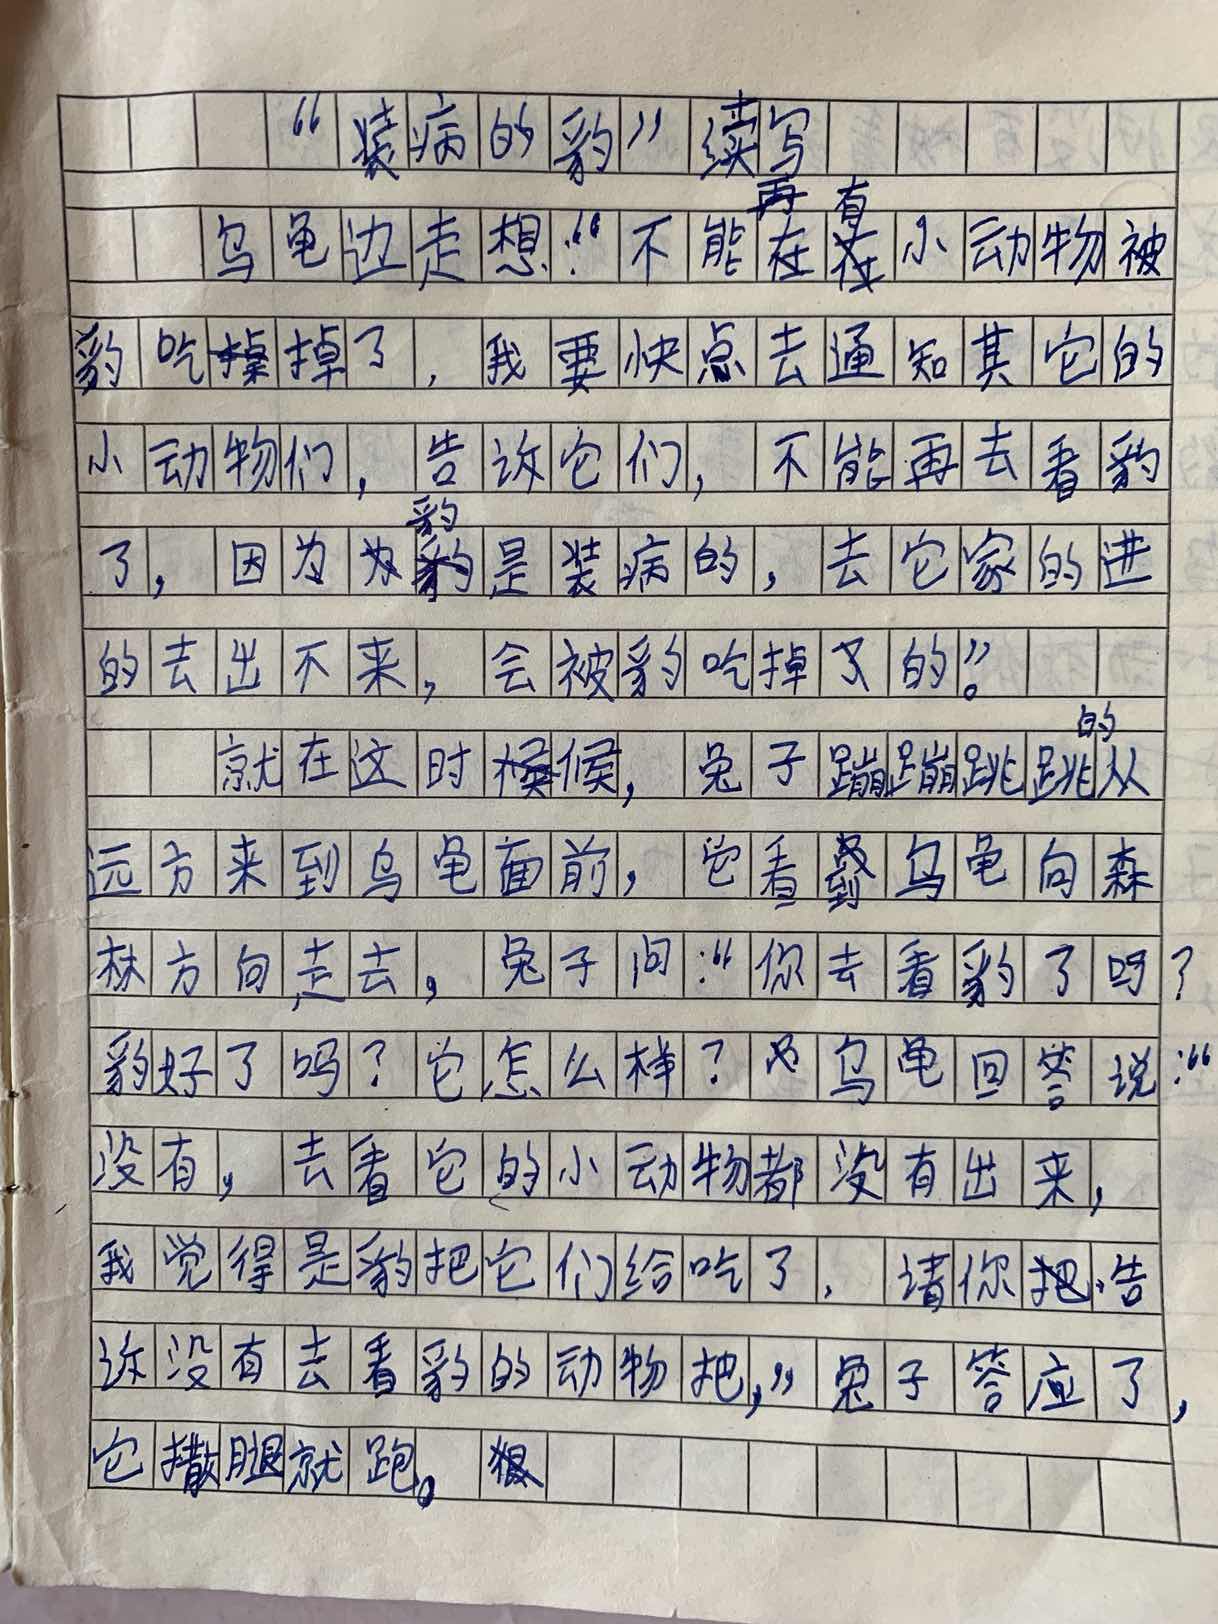 “装病的豹”续写
乌龟边走想:“不能再有小动物被
豹吃掉了，我要快点去通知其它的
小动物们，告诉它们，不能再去看豹
了，因为为豹是装病的，去它家的进
的去出不来，会被豹吃掉了的”。
就在这时候，兔子蹦蹦跳跳的从
远方来到乌龟面前，它看到乌龟向森
林方向走去，兔子问:“你去看豹了吗？
豹好了吗？它怎么样？乌龟回答说:“
没有，去看它的小动物都没有出来，
我觉得是豹把它们给吃了，请你把告
诉没有去看豹的动物把，”兔子答应了，
它撒腿就跑。